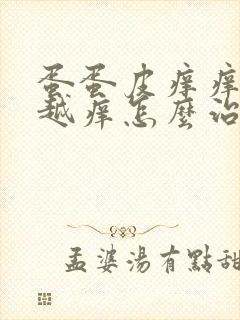 蛋蛋皮癢癢
越癢怎麼治
孟婆湯有點甜